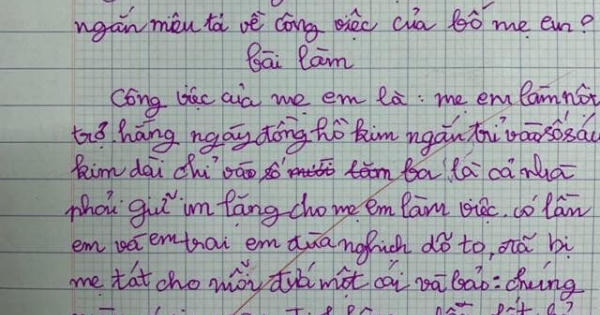 ngắn miêu tả về công việc của bố mẹ em?
bài làm
Công việc của mẹ em là: mẹ em làm nột
trợ, hằng ngày đồng hồ kim ngắn trỉ vào số sáu
kim dài chỉ vào số mười lăm ba là cả nhà
phải giữ im lặng cho mẹ em làm việc. có lần
em và em trai em đùa nghịch dỗ to, đã bị
mẹ tát cho mỗi đứa một cái và bảo: chúng